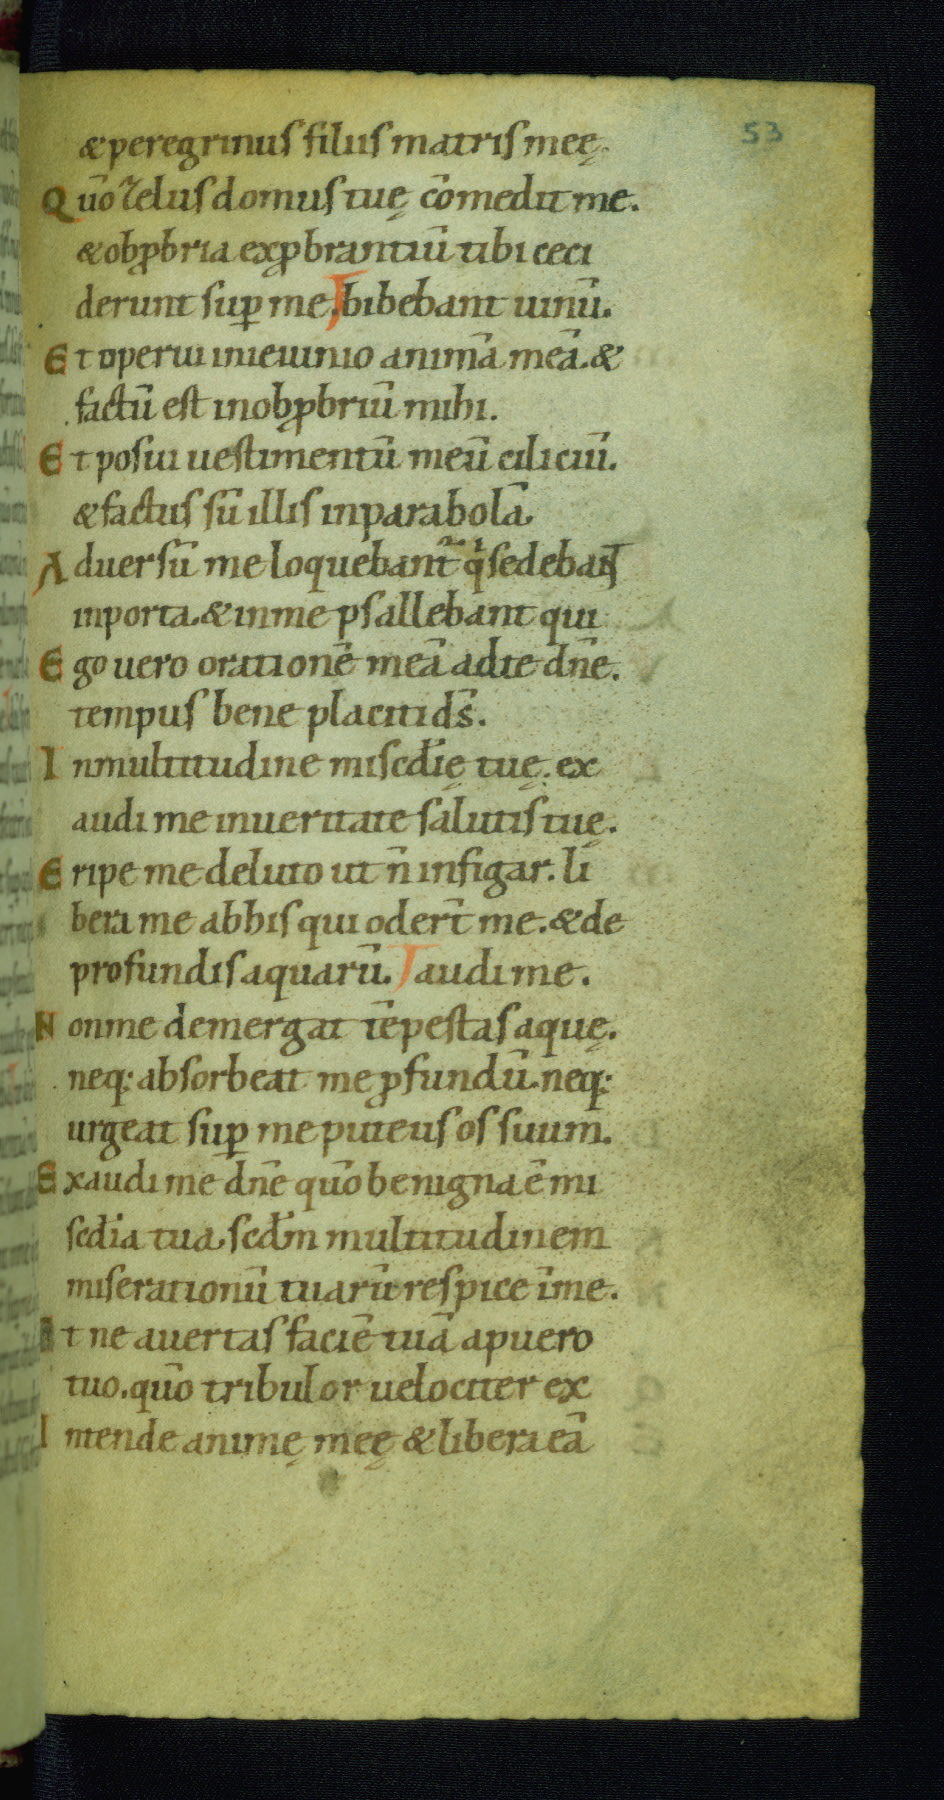 53
&peregrinus filiis matris meę.
Quō zelus domus tuę cōmedit me.
&obꝓbria exꝓbrantiū tibi ceci
derunt suꝑ me. bibebant uinū.
Et operui inieiunio animā meā. &
factū est inobꝓbriū mihi.
Et posui uestimentū meū ciliciū.
&factus sū illis inparabolā.
Aduersū me loquebant᷑ qͥ sedebant
inporta. &inme psallebant qui
Ego uero orationē meā adte dn̄e.
tempus bene placiti ds̄.
Inmultitudine misc̄dię tuę. ex
audi me inueritate salutis tuę.
Eripe me deluto ut n̄ infigar. li
bera me abhis qui oder̄t me. &de
profundis aquarū. audi me.
Nonme demergat tēpestas aquę.
neq; absorbeat me ꝓfundū. neq;
urgeat suꝑ me puteus os suum.
Exaudi me dn̄e quō benigna ē mi
sc̄dia tua. sc̄dm multitudinem
miserationū tuarū respice īme.
Et ne auertas faciē tuā apuero
tuo. quō tribulor uelociter ex
Intende animę meę &libera eā